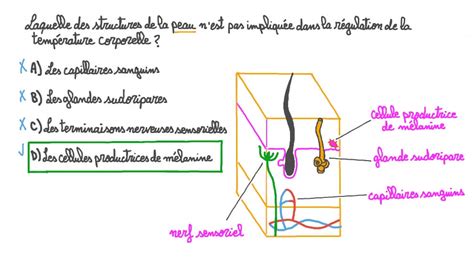 Laquelle des structures de la peau n'est pas impliquée dans la régulation de la
température corporelle ?
A) Les capillaires sanguins
B) Les glandes sudoripares
C) Les terminaisons nerveuses sensorielles
D) Les cellules productrices de mélanine
cellule productrice
de mélanine
glande sudoripare
capillaires sanguins
nerf sensoriel